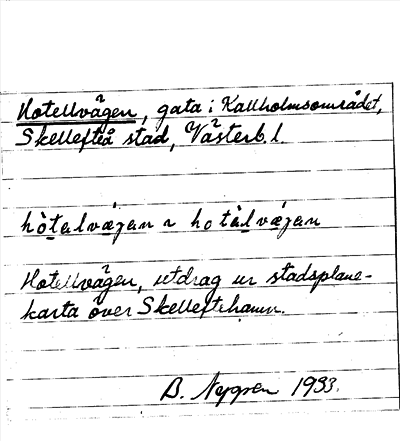 Hotellvägen, gata i Kallholmsområdet,
Skellefteå stad, Västerb. l.
hòtalvæ̀gan ~ hotàlvæ̀gan
Hotellvägen, utdrag ur stadsplane-
karta över Skelleftehamn.
B. Nygren 1933.